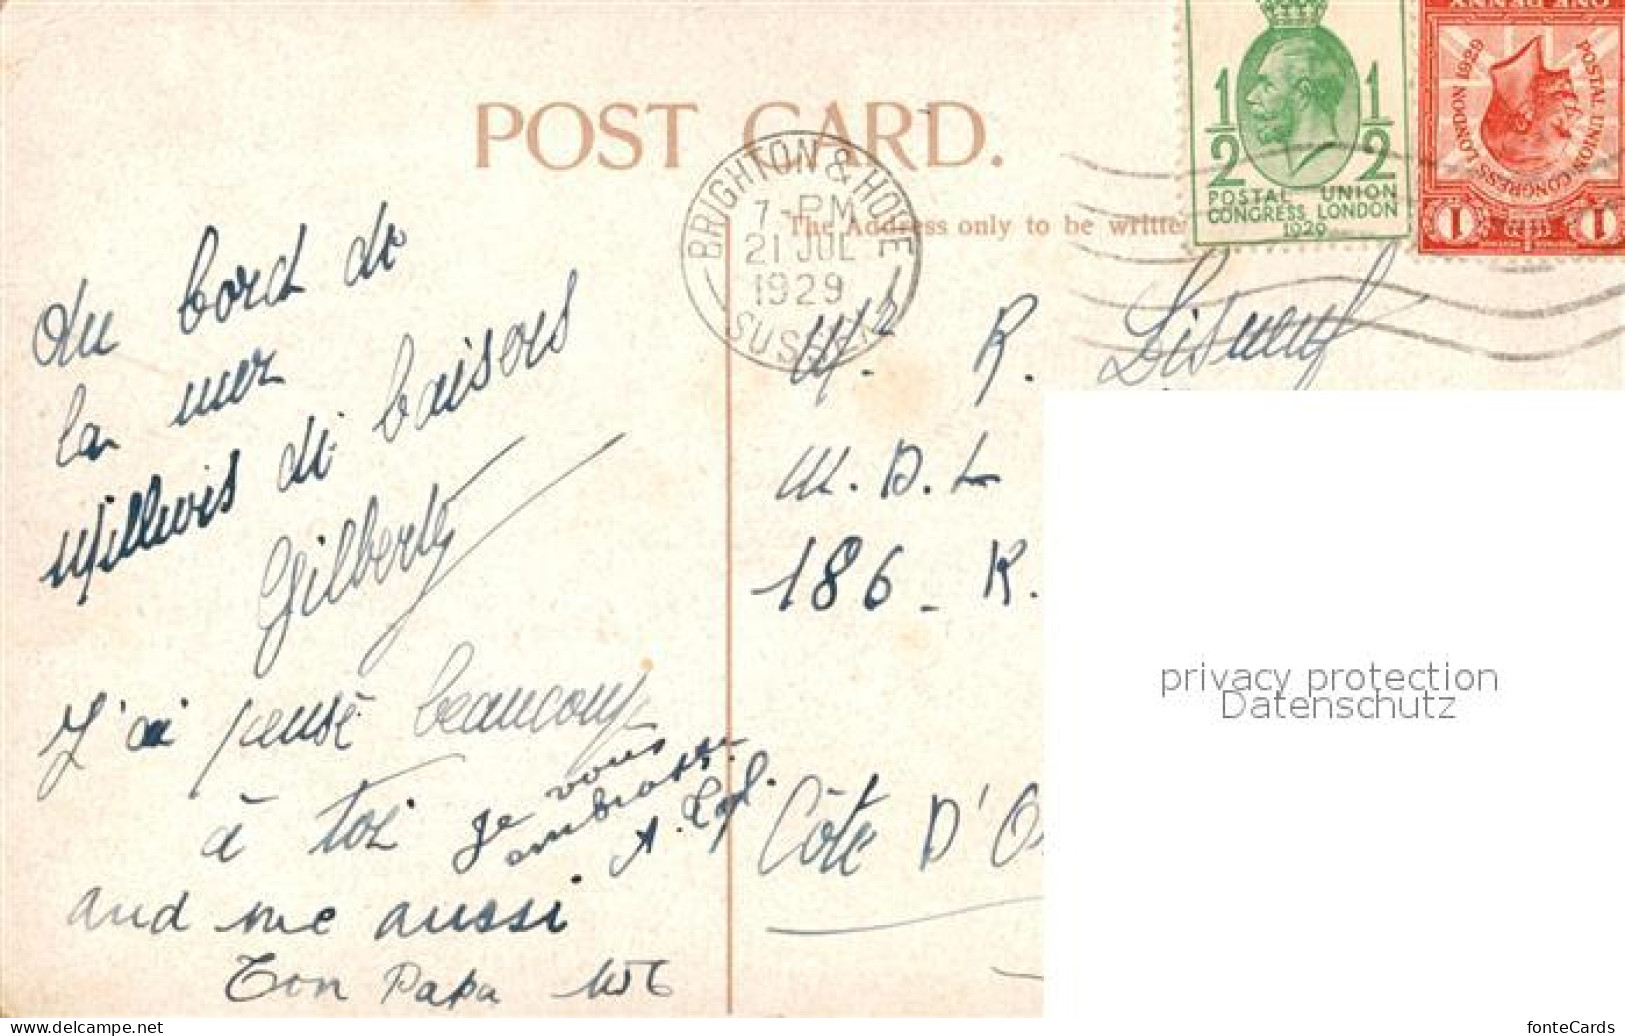 POST CARD.
The Address only to be written
BRIGHTON & HOVE
7-PM
21 JUL
1929
SUSSEX
1/2 1/2
POSTAL UNION
CONGRESS LONDON
1929
ONE PENNY
POSTAL UNION CONGRESS LONDON 1929
1 1
du bord de
la mer
Milliers de baisers
Gilberte
J'ai pensé beaucoup
à toi
Je vous
embrasse
A.
and me aussi
Ton Papa
Mr R.
M. D. L
186 - R.
Côte D'O
privacy protection
Datenschutz
fonteCards
www.delcampe.net